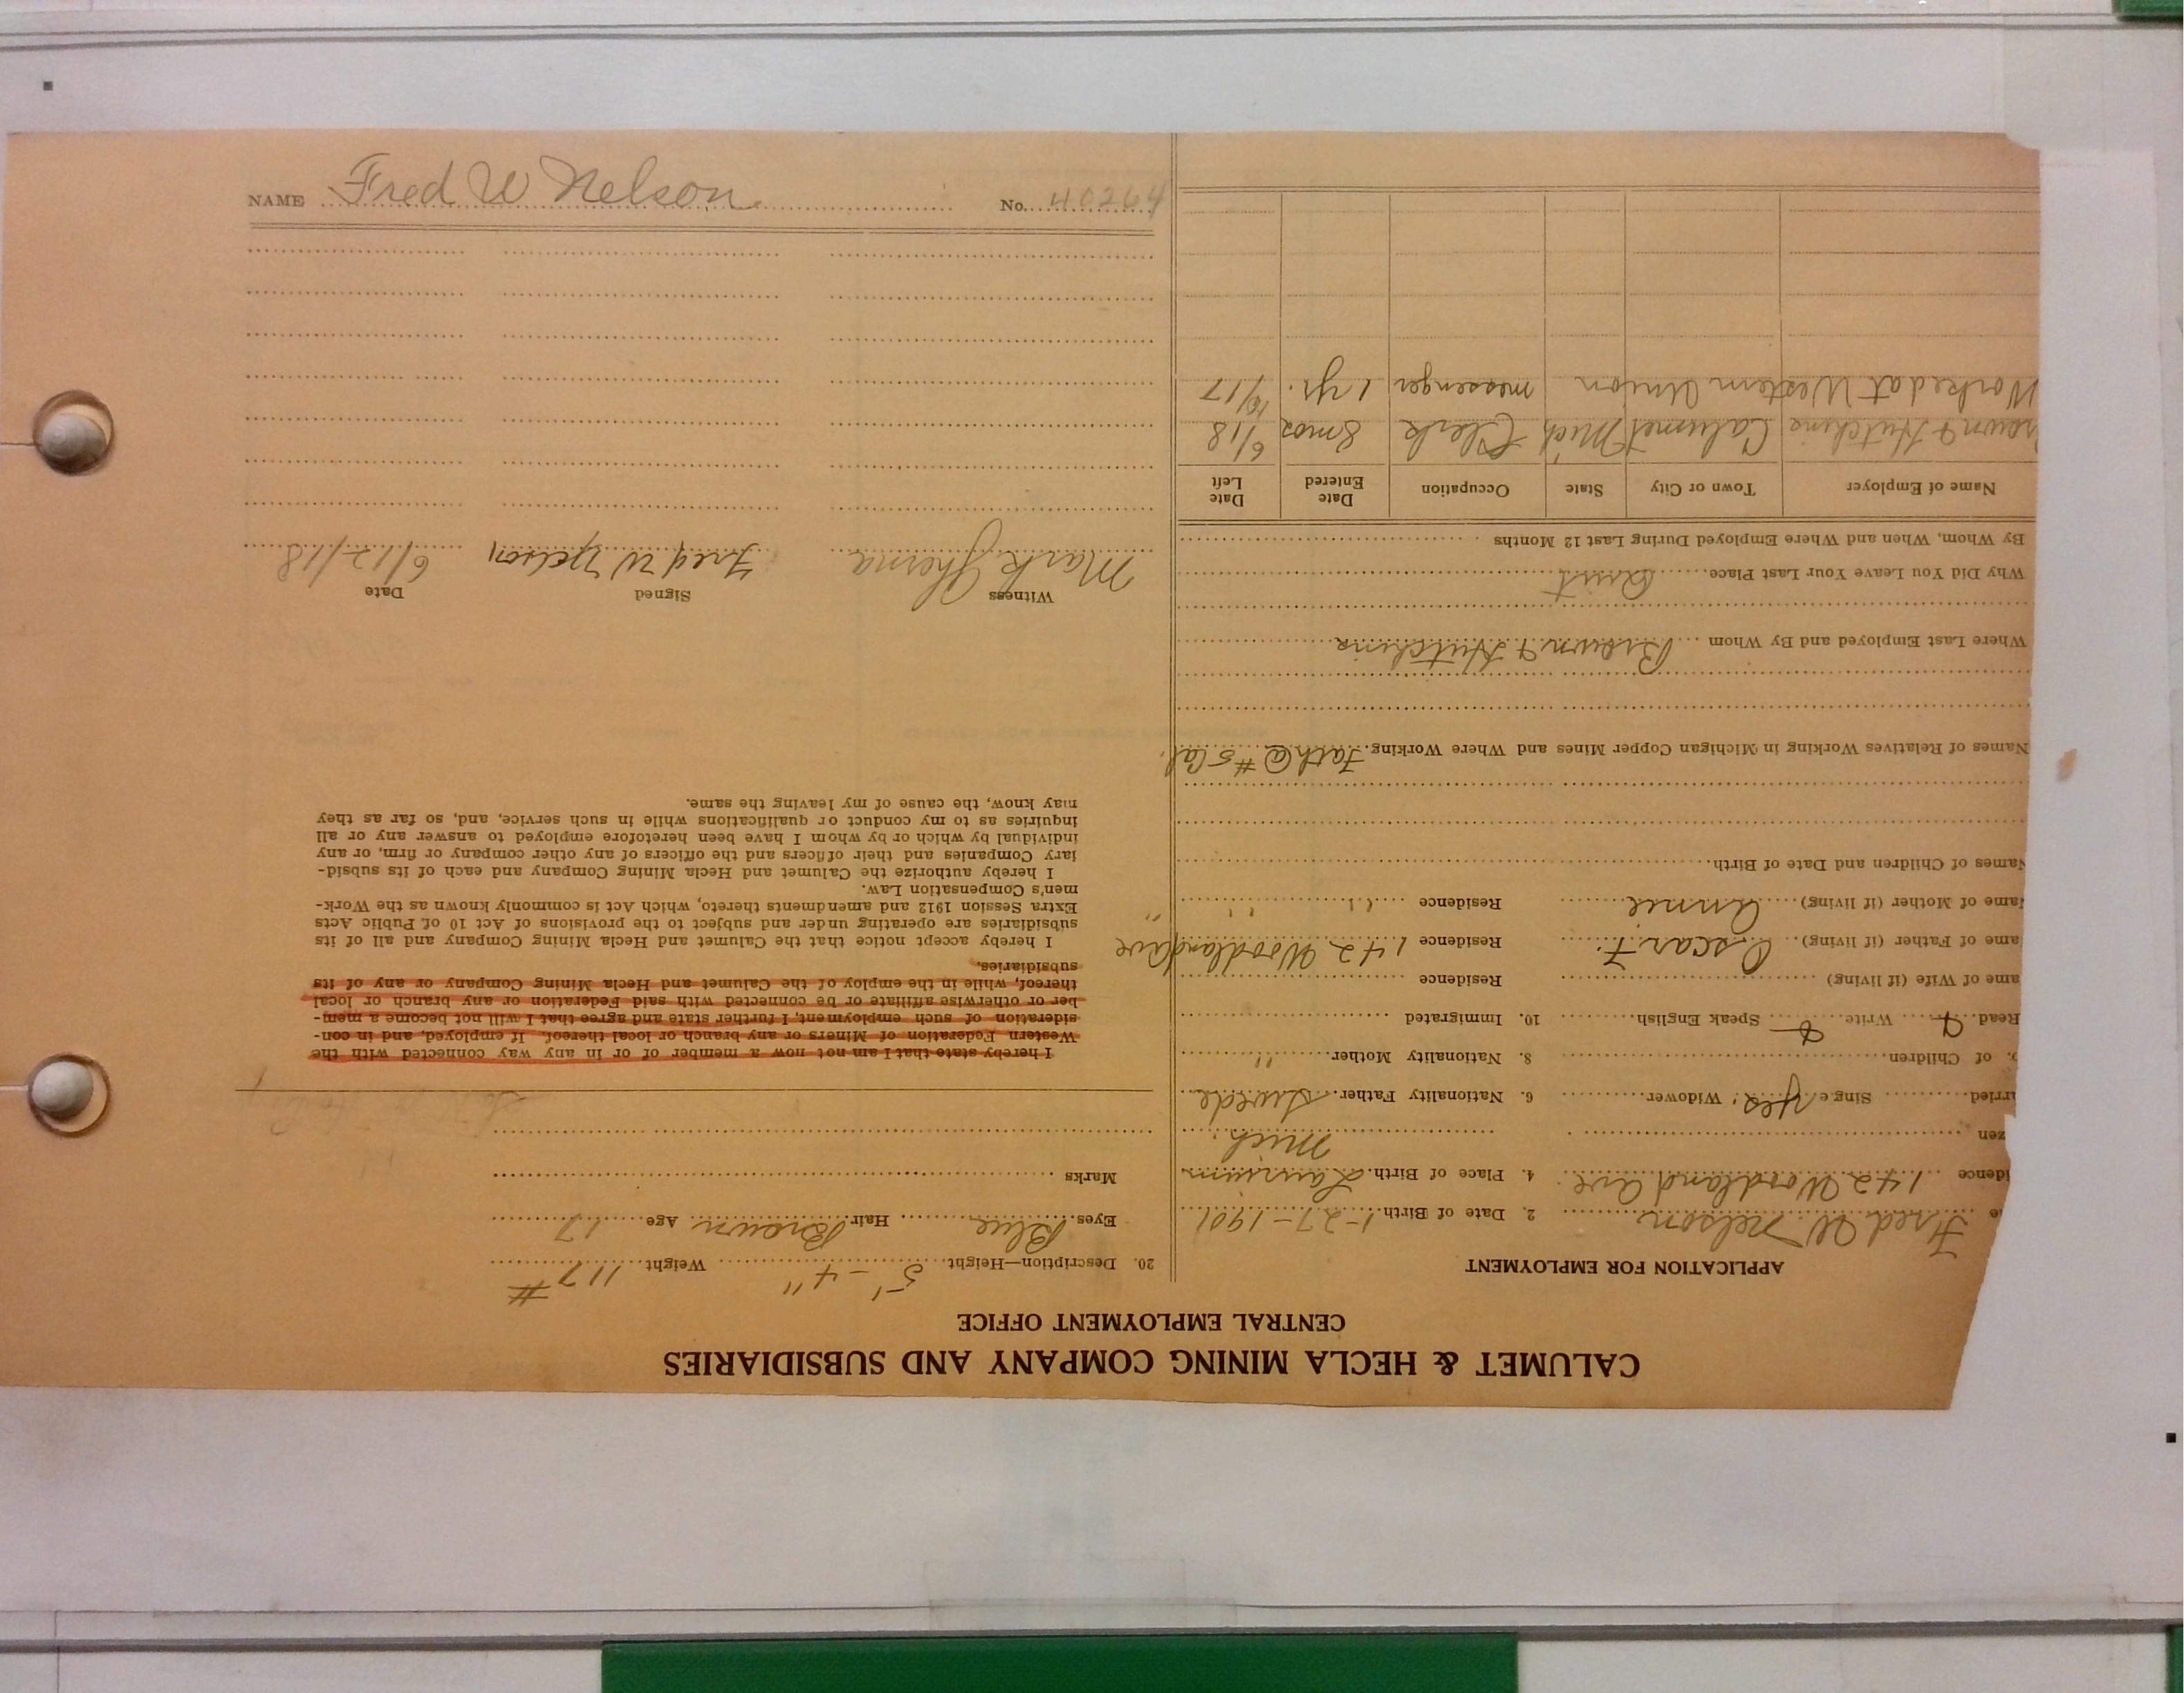 NAME Fred W Nelson No. 40264
CALUMET & HECLA MINING COMPANY AND SUBSIDIARIES
CENTRAL EMPLOYMENT OFFICE
APPLICATION FOR EMPLOYMENT
Fred W. Nelson 2. Date of Birth 1-27-1901
idence 142 Woodland Ave. 4. Place of Birth Laurium
zen Mich.
rried Single yes. Widower 6. Nationality Father Swede
of Children 8. Nationality Mother " "
Read Write Speak English 10. Immigrated
ame of Wife (if living) Residence
ame of Father (if living) Oscar F. Residence 142 Woodland Ave
ame of Mother (if living) Annie Residence " " "
Names of Children and Date of Birth
Names of Relatives Working in Michigan Copper Mines and Where Working. Fath @ #5 Cal.
Where Last Employed and By Whom Brown & Hutchins
Why Did You Leave Your Last Place Quit
By Whom, When and Where Employed During Last 12 Months
Name of Employer Town or City State Occupation Date Entered Date Left
rown & Hutchins Calumet Mich Clerk 8 mos 6/18
Worked at Western Union messenger 1 yr. 10/17
20. Description—Height 5'-4" Weight 117 #
Eyes Blue Hair Brown Age 17
Marks
I hereby state that I am not now a member of or in any way connected with the
Western Federation of Miners or any branch or local thereof. If employed, and in con-
sideration of such employment, I further state and agree that I will not become a mem-
ber or otherwise affiliate or be connected with said Federation or any branch or local
thereof, while in the employ of the Calumet and Hecla Mining Company or any of its
subsidiaries.
I hereby accept notice that the Calumet and Hecla Mining Company and all of its
subsidiaries are operating under and subject to the provisions of Act 10 of Public Acts
Extra Session 1912 and amendments thereto, which Act is commonly known as the Work-
men's Compensation Law.
I hereby authorize the Calumet and Hecla Mining Company and each of its subsid-
iary Companies and their officers and the officers of any other company or firm, or any
individual by which or by whom I have been heretofore employed to answer any or all
inquiries as to my conduct or qualifications while in such service, and, so far as they
may know, the cause of my leaving the same.
Witness Signed Date
Mark Fred W Nelson 6/12/18